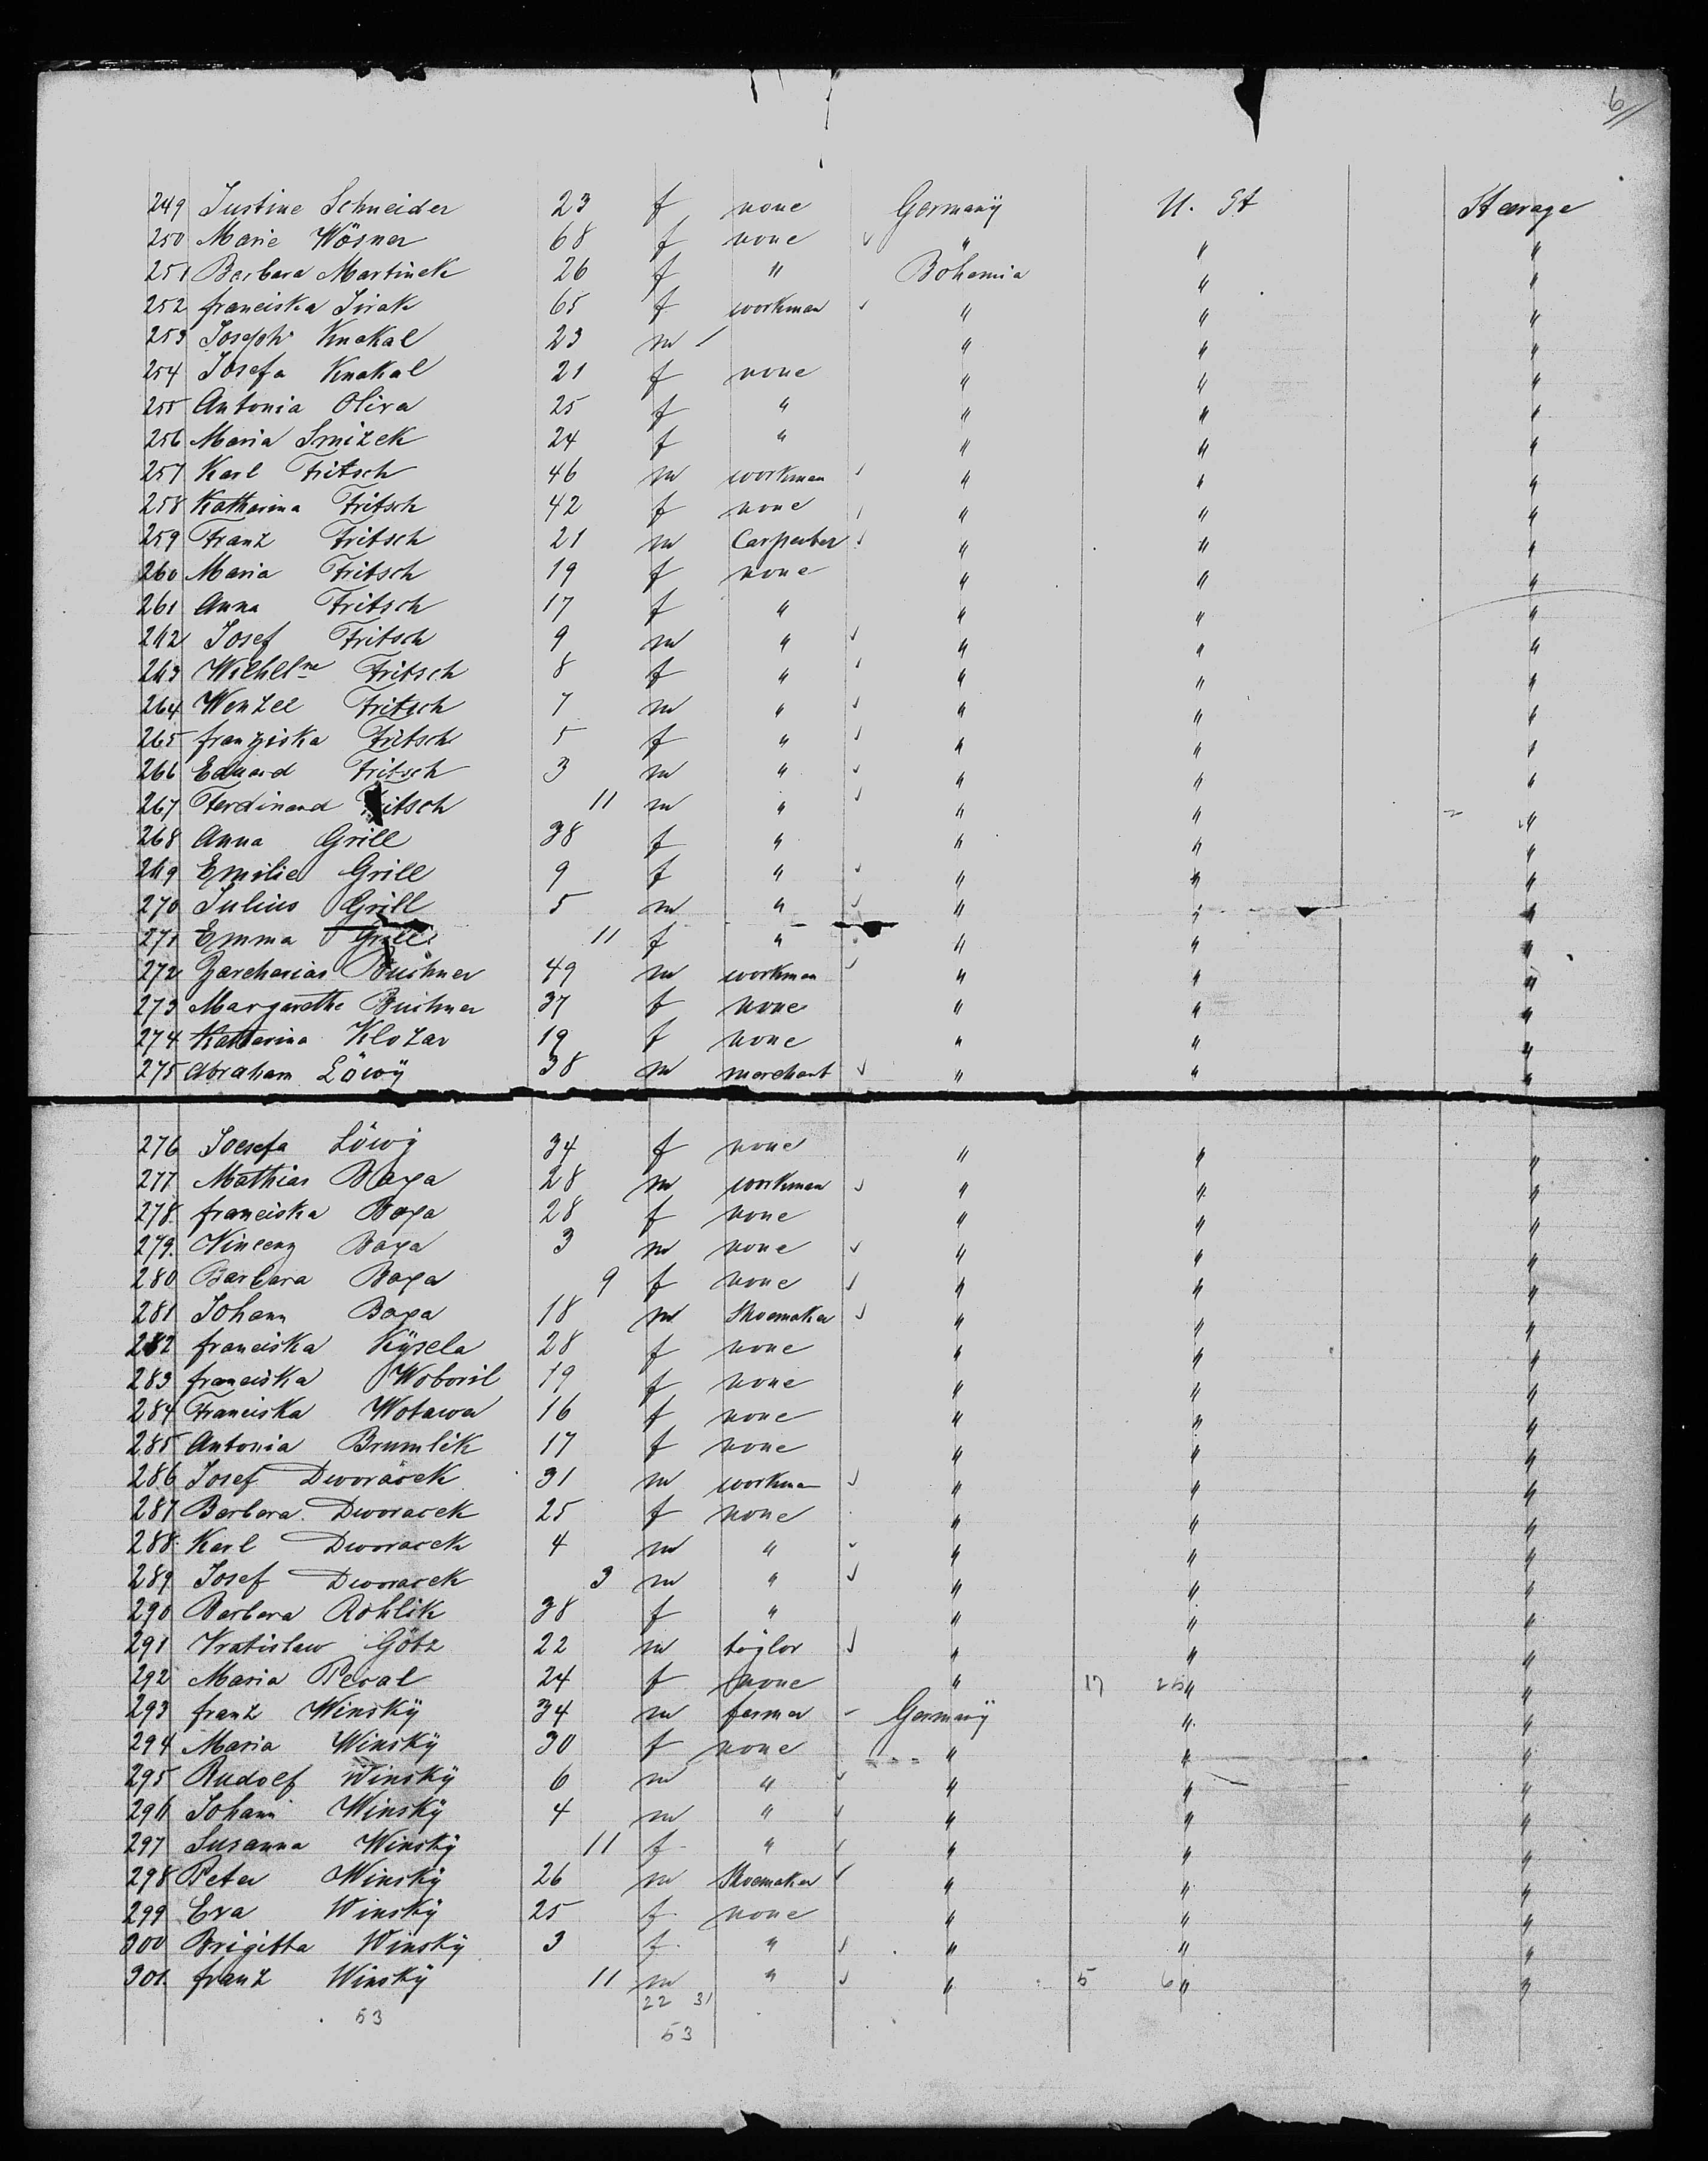 6
249 Justine Schneider 23 f none Germany U. St Steerage
250 Marie Wösner 68 f none " " "
251 Barbara Martinek 26 f " Bohemia " "
252 franciska Jirak 65 f workman " " "
253 Joseph Knakal 23 m / " " "
254 Josefa Knakal 21 f none " " "
255 Antonia Oliva 25 f " " " "
256 Maria Smizek 24 f " " " "
257 Karl Fritsch 46 m workman " " "
258 Katharina Fritsch 42 f none " " "
259 Franz Fritsch 21 m Carpenter " " "
260 Maria Fritsch 19 f none " " "
261 Anna Fritsch 17 f " " " "
262 Josef Fritsch 9 m " " " "
263 Wilhelme Fritsch 8 f " " " "
264 Wenzel Fritsch 7 m " " " "
265 franziska Fritsch 5 f " " " "
266 Eduard Fritsch 3 m " " " "
267 Ferdinand Fritsch 11 m " " " "
268 Anna Grill 38 f " " " "
269 Emilie Grill 9 f " " " "
270 Julius Grill 5 m " " " "
271 Emma Grill 11 f " " " "
272 Zarcharias 49 m workman " " "
273 Margarethe 37 f none " " "
274 Katharina Klozar 19 f none " " "
275 Abraham Löwÿ 38 m merchant " " "
276 Joesefa Löwÿ 34 f none " " "
277 Mathias Baxa 28 m workman " " "
278 franciska Baxa 28 f none " " "
279. Vincenz Baxa 3 m none " " "
280 Barbara Baxa 9 f none " " "
281 Johann Baxa 18 m Shoemaker " " "
282 franciska Kÿsela 28 f none " " "
283 franciska Woboril 19 f none " " "
284 Franciska Wotawa 16 f none " " "
285 Antonia Brumlik 17 f none " " "
286 Josef Dworacek 31 m workman " " "
287 Barbara Dworacek 25 f none " " "
288. Karl Dworacek 4 m " " " "
289 Josef Dworacek 3 m " " " "
290 Barbara Rohlik 38 f " " " "
291 Vratislaw Götz 22 m taylor " " "
292 Maria Peval 24 f none " 17 " "
293 franz Winskÿ 34 m farmer Germanÿ " "
294 Maria Winskÿ 30 f none " " "
295 Rudolf Winskÿ 6 m " " " "
296 Johann Winskÿ 4 m " " " "
297 Susanna Winskÿ 11 f " " " "
298 Peter Winskÿ 26 m Shoemaker " " "
299 Eva Winskÿ 25 f none " " "
300 Brigitta Winskÿ 3 f " " " "
301 franz Winskÿ 11 m " " 5 6 " "
22 31
53
53